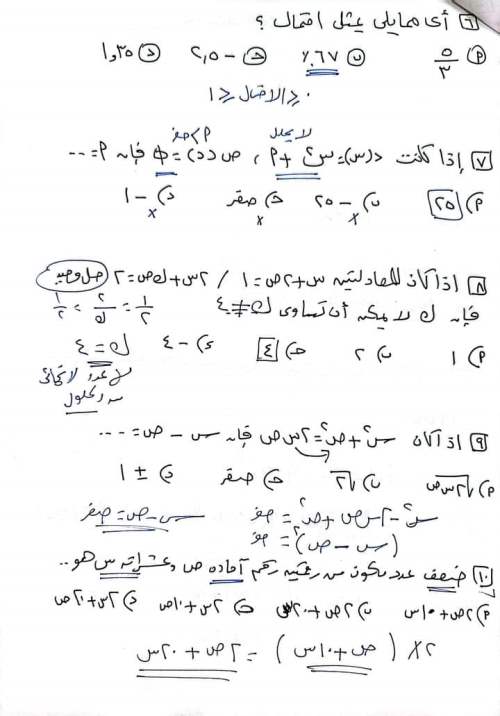 ٦ أى مما يلى يمثل احتمال ؟
P) ٥/٣ ب) ٦٧٪ ج) -٢,٥ د) ١,٢٥
٠ ≤ الاحتمال ≤ ١
لا يحلل P > صفر
٧ إذا كانت د(س) = س٢ + P ، ص(د) = φ فإن P = ...
P) ٢٥ ب) -٢٥ ج) صفر د) -١
x x x
٨ اذا كان للمعادلتين س + ٢ص = ١ / ٢س + ك ص = ٢ حل وحيد
فإن ك لا يمكن أن تساوى ك ≠ ٤ ١/٢ = ٢/ك = ١/٢
P) ١ ب) ٢ ج) ٤ ء) -٤ ك = ٤
عدد لا نهائى
من الحلول
٩ اذا كان س٢ + ص٢ = ٢س ص فإن س - ص = ...
P) √٢س ص ب) √٢ ج) صفر د) ± ١
س٢ - ٢س ص + ص٢ = صفر س - ص = صفر
(س - ص)٢ = صفر
١٠ ضعف عدد مكون من رقمين رقم آحاده ص وعشراته س هو ..
P) ٢ص + ١٠س ب) ٢ص + ٢٠س ج) ٢س + ١٠ص د) ٢س + ٢٠ص
٢ × (ص + ١٠س) = ٢ص + ٢٠س